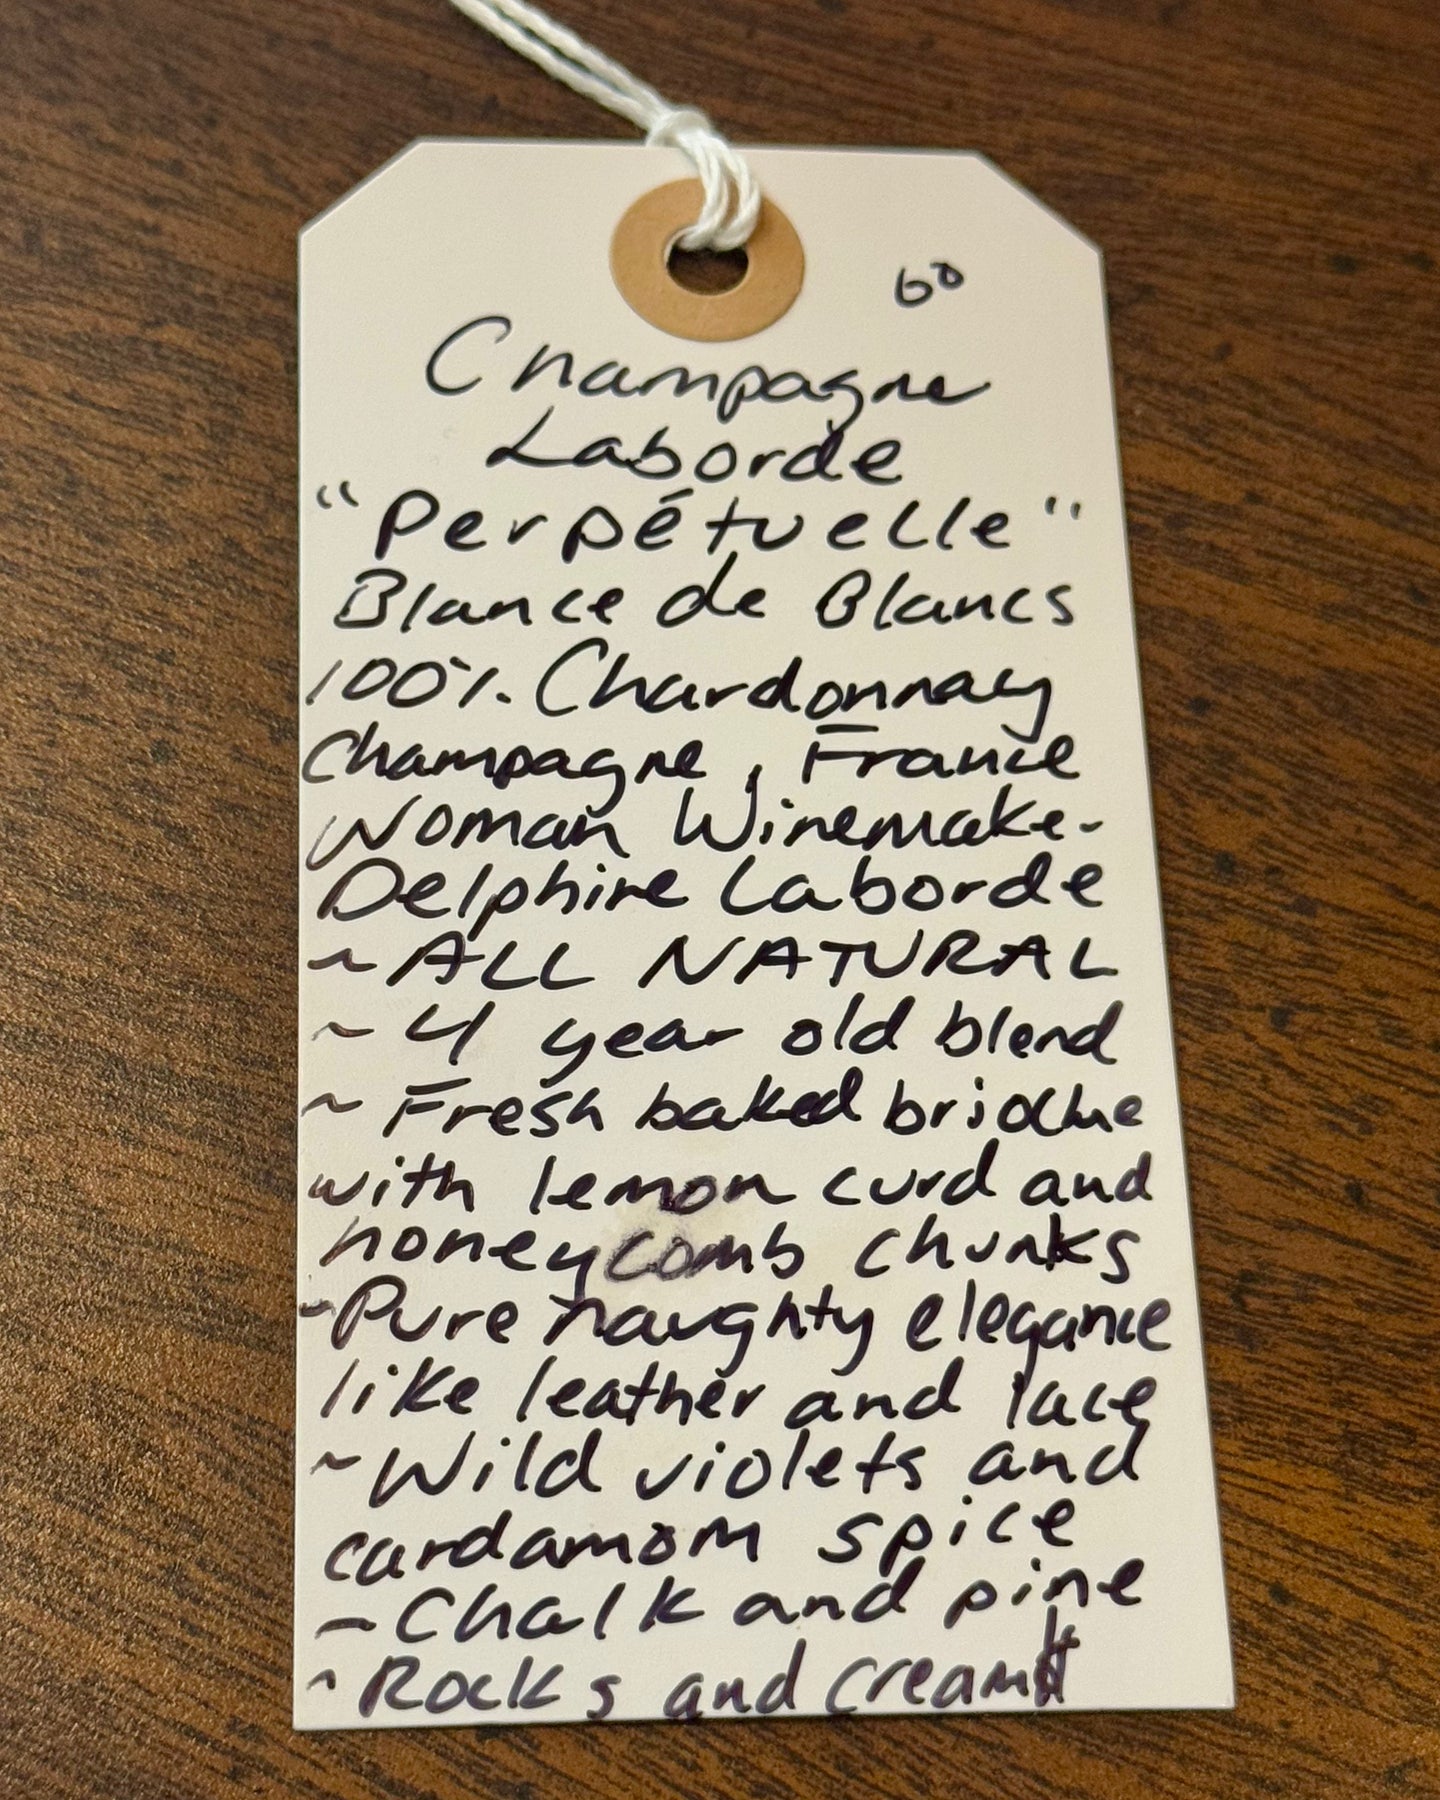 60
Champagne
Laborde
"Perpétuelle"
Blance de Blancs
100% Chardonnay
Champagne, France
Woman Winemaker
Delphine Laborde
~ ALL NATURAL
~ 4 year old blend
~ Fresh baked brioche
with lemon curd and
honeycomb chunks
~ Pure naughty elegance
like leather and lace
~ Wild violets and
cardamom spice
~ Chalk and pine
~ Rocks and cream